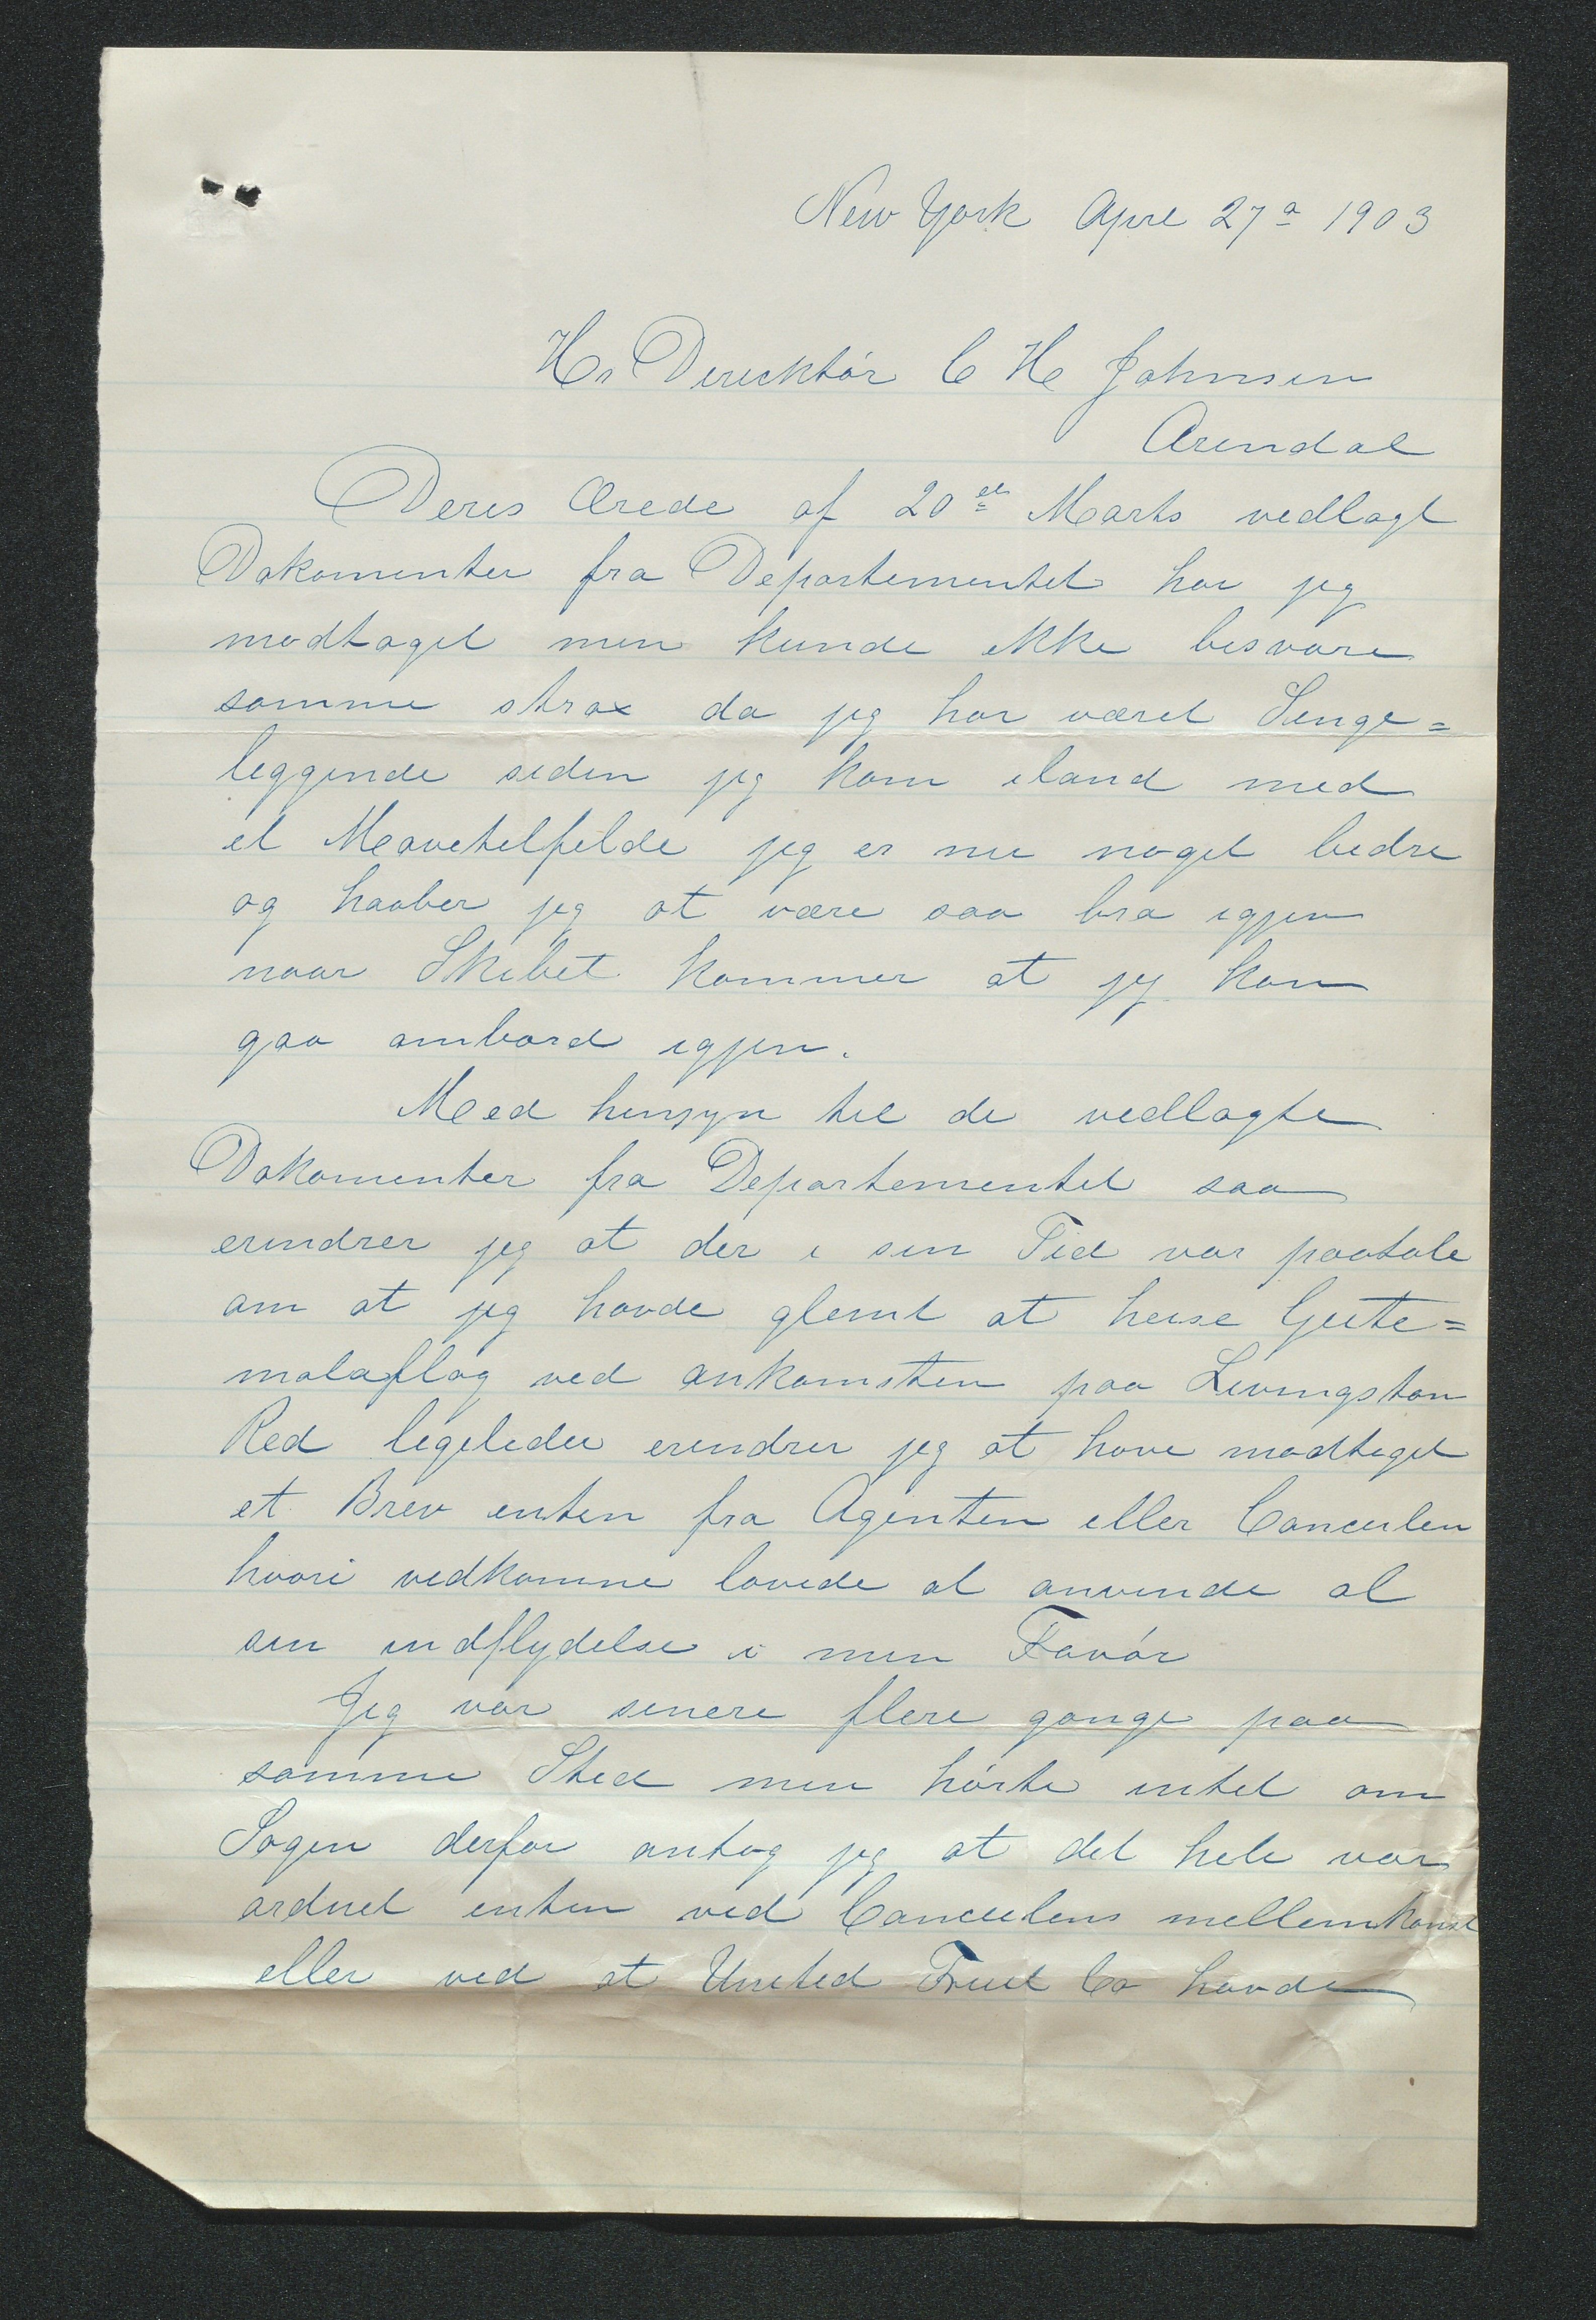 New York April 27ᵃ 1903
Hr Direcktör C H Johnsen
Arendal
Deres Ærede af 20de Marts vedlagt
Dokomenter fra Departementet har jeg
modtaget men kunde ikke besvare
samme strax da jeg har været Senge=
leggende siden jeg kom iland med
et Mavetelfelde jeg er nu noget bedre
og haaber jeg at være saa bra igjen
naar Skibet kommer at jeg kan
gaa ombord igjen.
Med hensyn til de vedlagte
Dokomenter fra Departementet saa
erindrer jeg at der i sin Tid var paatale
om at jeg havde glemt at heise Gute=
malaflag ved ankomsten paa Livingston
Red ligeledes erindrer jeg at have modtaget
et Brev enten fra Agenten eller Conculen
hvori vedkomne lovede at anvende al
sin indflydelse i min Favör
Jeg var senere flere gange paa
samme Sted men hörte intet om
Sagen derfor antog jeg at det hele var
ordnet enten ved Conculens mellemkomst
eller ved at United Fruit Co havde